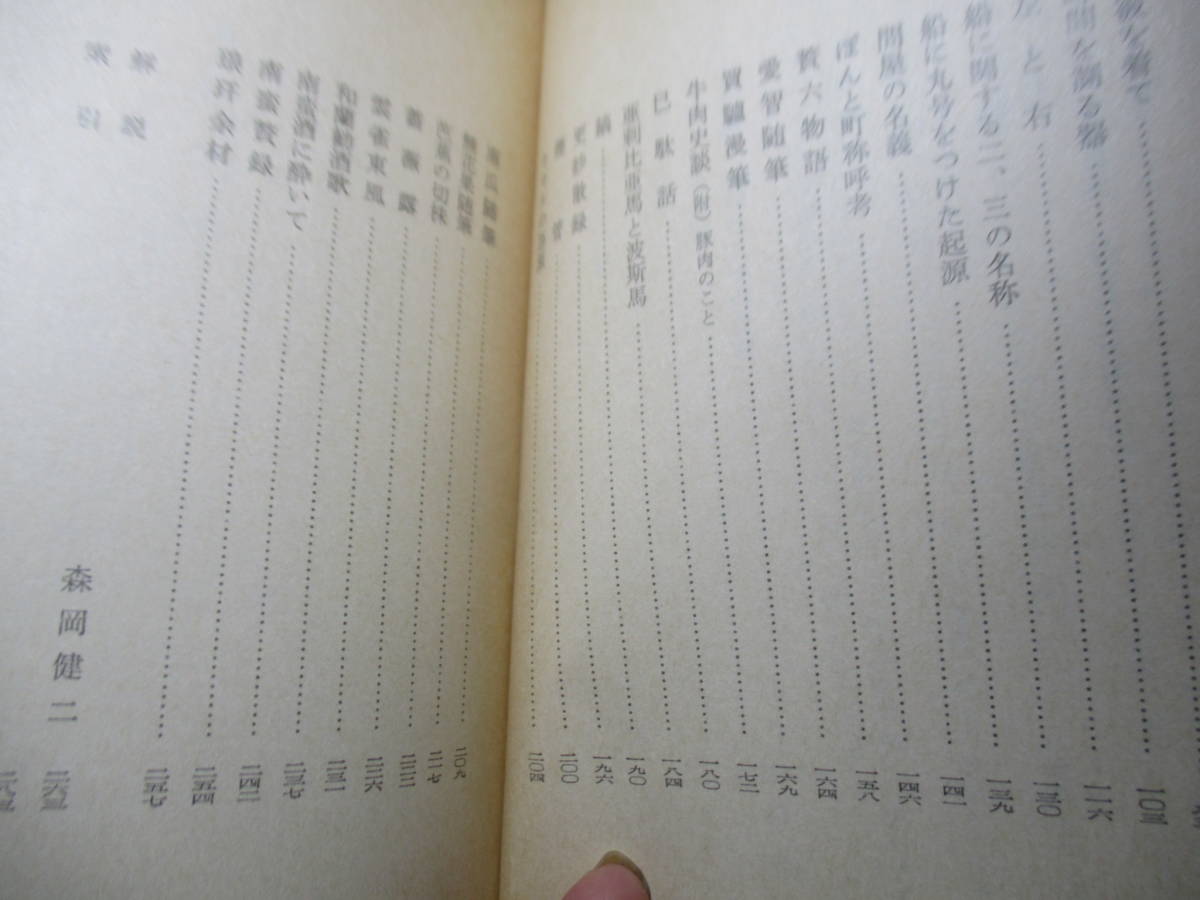 被を着て
間を測る器 一〇三
左と右 一一六
船に関する二、三の名称 一三〇
船に丸号をつけた起源 一三九
問屋の名義 一四一
ぽんと町称呼考 一四六
贅六物語 一五八
愛智随筆 一六四
漫筆 一六九
牛肉史談（附）豚肉のこと 一七二
巳駄話 一八〇
亜剌比亜馬と波斯馬 一八四
縞 一九〇
更紗散録 一九六
煙管 二〇〇
二〇四
南瓜随筆 二〇九
随筆 二一七
の切株 二二二
薔薇露 二二六
雲雀東風 二三一
和蘭勧酒歌 二三七
南蛮酒に酔いて 二四二
南蛮贅録 二五四
余材 二五七
解説 森岡健二 二六三
索引 二八五